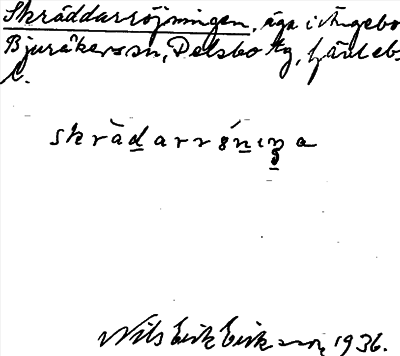 Skräddarröjningen, äga i Ängebo
Bjuråkers sn, Delsbo tg, Gävlebs
l.
skràdarrǿnıŋa
Nils Erik Eriksson, 1936.